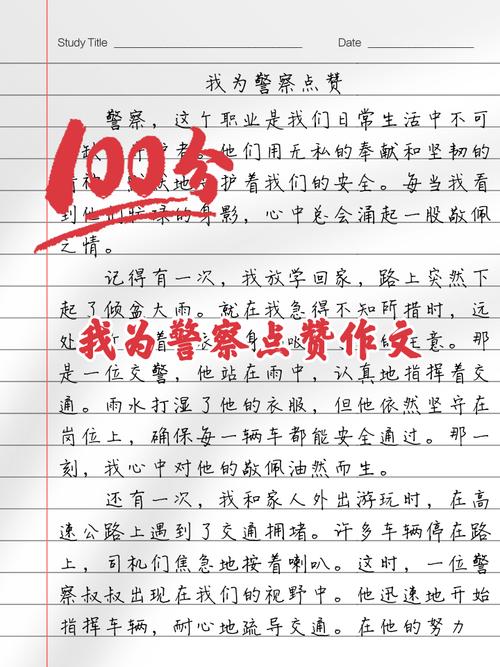 Study Title
Date
我为警察点赞
警察，这个职业是我们日常生活中不可
100分
缺 护者。他们用无私的奉献和坚韧的
地 护着我们的安全。每当我看
到他们忙碌的身影，心中总会涌起一股敬佩
之情。
记得有一次，我放学回家，路上突然下
起了倾盆大雨。就在我急得不知所措时，远
处 着 衣 身 的注意。那
我为警察点赞作文
是一位交警，他站在雨中，认真地指挥着交
通。雨水打湿了他的衣服，但他依然坚守在
岗位上，确保每一辆车都能安全通过。那一
刻，我心中对他的敬佩油然而生。
还有一次，我和家人外出游玩时，在高
速公路上遇到了交通拥堵。许多车辆停在路
上，司机们焦急地按着喇叭。这时，一位警
察叔叔出现在我们的视野中。他迅速地开始
指挥车辆，耐心地疏导交通。在他的努力